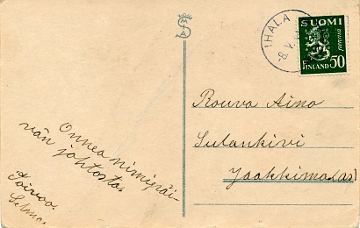 IHALA
SUOMI
FINLAND 50
Rouva Aino
Sulankivi
Jaakkima(as)
Onnea nimipäi-
vän johtosta.
Toivoo.
Selma.